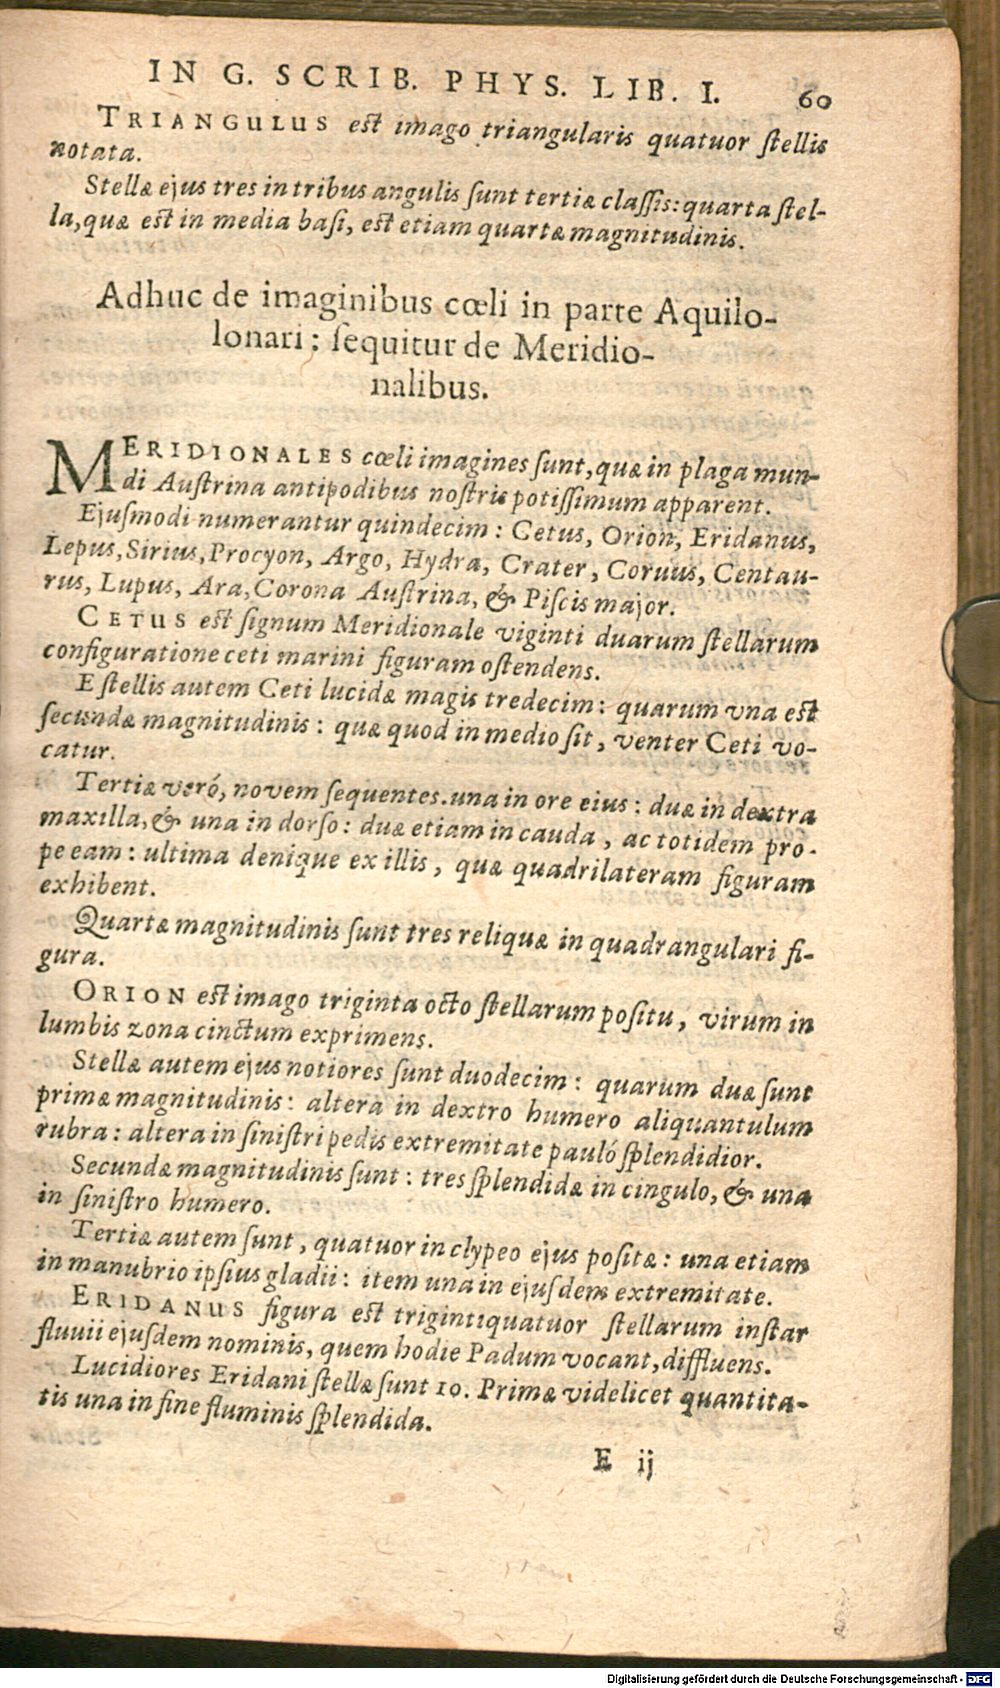 IN G. SCRIB. PHYS. LIB. I. 60
TRIANGULUS est imago triangularis quatuor ſtellis
notata.
Stellæ ejus tres in tribus angulis ſunt tertiæ claſſis: quarta ſtel-
la, quæ est in media baſi, est etiam quartæ magnitudinis.
Adhuc de imaginibus cœli in parte Aquilo-
lonari: ſequitur de Meridio-
nalibus.
MERIDIONALES cœli imagines ſunt, quæ in plaga mun-
di Auſtrina antipodibus noſtris potiſſimum apparent.
Ejuſmodi numerantur quindecim: Cetus, Orion, Eridanus,
Lepus, Sirius, Procyon, Argo, Hydra, Crater, Coruus, Centau-
rus, Lupus, Ara, Corona Auſtrina, & Piſcis major.
CETUS est ſignum Meridionale viginti duarum ſtellarum
configuratione ceti marini figuram oſtendens.
E ſtellis autem Ceti lucidæ magis tredecim: quarum vna est
ſecundæ magnitudinis: quæ quod in medio ſit, venter Ceti vo-
catur.
Tertiæ veró, novem ſequentes. una in ore eius: duæ in dextra
maxilla, & una in dorſo: duæ etiam in cauda, ac totidem pro-
pe eam: ultima denique ex illis, quæ quadrilateram figuram
exhibent.
Quartæ magnitudinis ſunt tres reliquæ in quadrangulari fi-
gura.
ORION est imago triginta octo ſtellarum poſitu, virum in
lumbis zona cinctum exprimens.
Stellæ autem ejus notiores ſunt duodecim: quarum duæ ſunt
primæ magnitudinis: altera in dextro humero aliquantulum
rubra: altera in ſiniſtri pedis extremitate pauló ſplendidior.
Secundæ magnitudinis ſunt: tres ſplendidæ in cingulo, & una
in ſiniſtro humero.
Tertiæ autem ſunt, quatuor in clypeo ejus poſitæ: una etiam
in manubrio ipſius gladii: item una in ejuſdem extremitate.
ERIDANUS figura est trigintiquatuor ſtellarum inſtar
fluvii ejuſdem nominis, quem hodie Padum vocant, diffluens.
Lucidiores Eridani ſtellæ ſunt 10. Primæ videlicet quantita-
tis una in fine fluminis ſplendida.
E ij
Digitalisierung gefördert durch die Deutsche Forschungsgemeinschaft - DFG